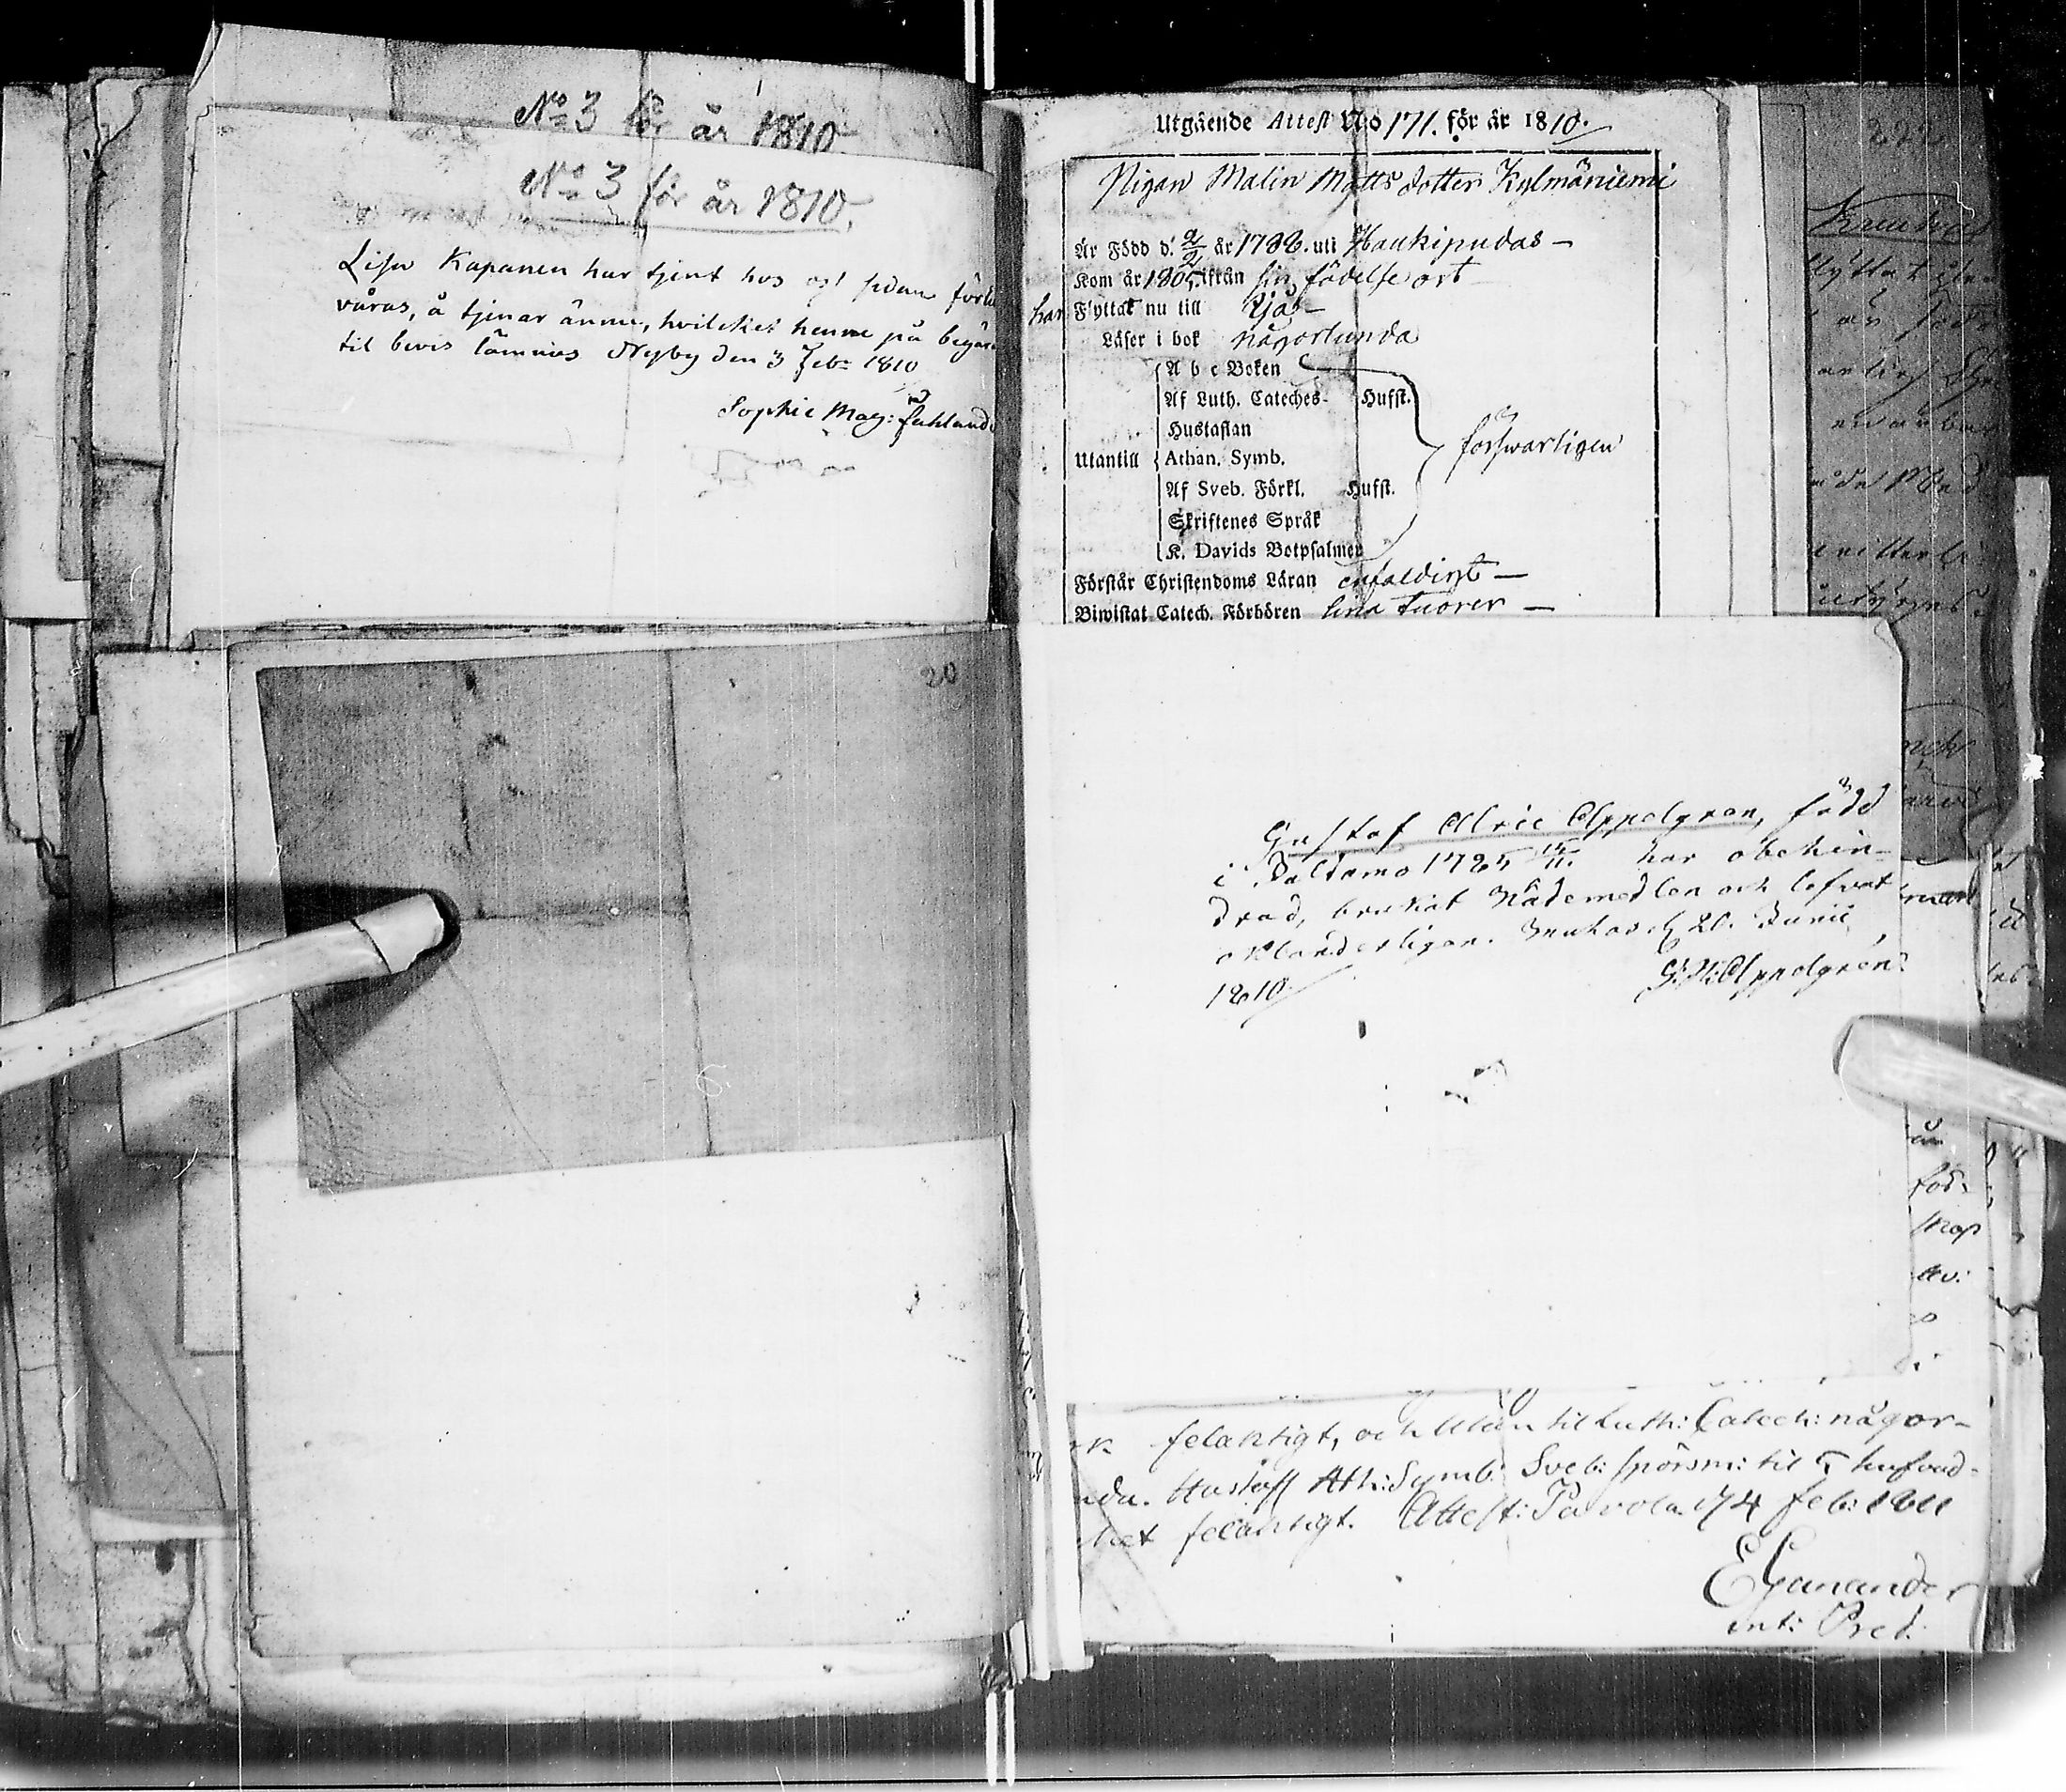 No 3 för år 1810
No 3 för år 1810.
Lisa Kapanen har tjent hos oss sedan förle
våras, å tjenar ännu, hvilcket henne på begära
til bevis lämnas Nyby den 3 Feb: 1810
Sophie Mag: Fahland
20
Utgående Attest No 171. för år 1810.
Pigan Malin Matts dotter Kylmäniemi
Är Född d. 2/2 år 1788. uti Haukipudas —
Kom år 1805. ifrån sin födelse ort
har Flyttat nu till Ijo —
Läser i bok någorlunda
A b c Boken
Af Luth. Cateches- Hufst.
Hustaflan
Utantill Athan. Symb. försvarligen
Af Sveb. Förkl. Hufst.
Skriftenes Språk
K. Davids Botpsalmer
Förstår Christendoms Läran enfaldigt —
Biwistat Catech. Förhören sina Tuorer —
Gustaf Alric Appelgren, född
i Paldamo 1785 15/11. har obehin-
drad, brukat Nådemedlen och lefvat
oklanderligen. Muhos d. 20. Junii
1810
G: H: Appelgren
felaktigt, och Utan til Luth: Catech: någor-
nda. Hustafl Ath: Symb: Sveb: spörsm: til 5 hufvud-
ket felaktigt. Attest: Pavola d. 4 Feb: 1811
E Ganander
int: Pred: